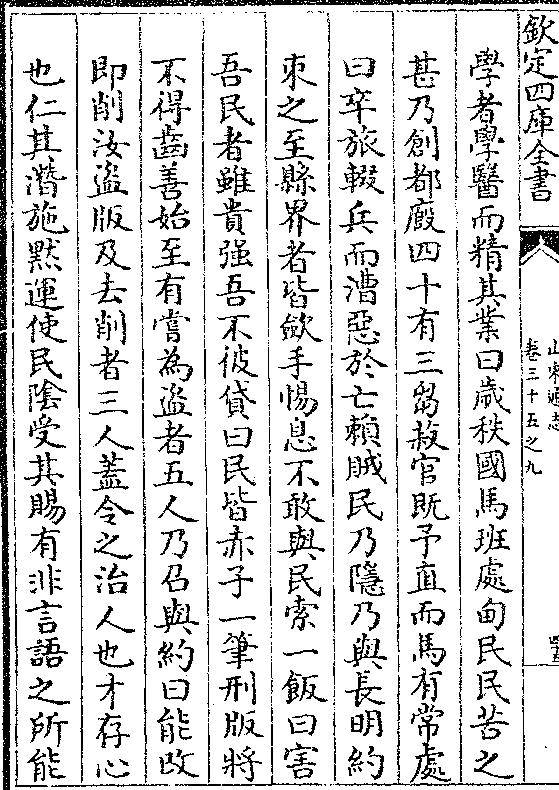 欽定四庫全書
山東通志
卷三十五之九
學者學醫而精其業曰歲秩國馬班處甸民民苦之
甚乃創都廄四十有三芻菽官既予直而馬有常處
曰卒旅輟兵而漕惡於亡賴賊民乃隱乃與長明約
朿之至縣界者皆斂手惕息不敢與民索一飯曰害
吾民者雖貴强吾不彼貸曰民皆赤子一筆刑版將
不得齒善始至有嘗為盜者五人乃召與約曰能改
即削汝盜版及去削者三人蓋令之治人也才存心
也仁其潛施黙運使民隂受其賜有非言語之所能